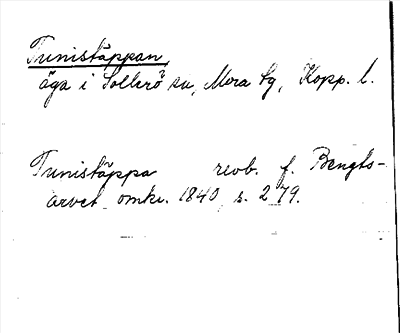 Tunistäppan,
äga i Sollerö sn, Mora tg, Kopp. l.
Tunistäppa renb. f. Bengts-
arvet omkr. 1840, s. 279.